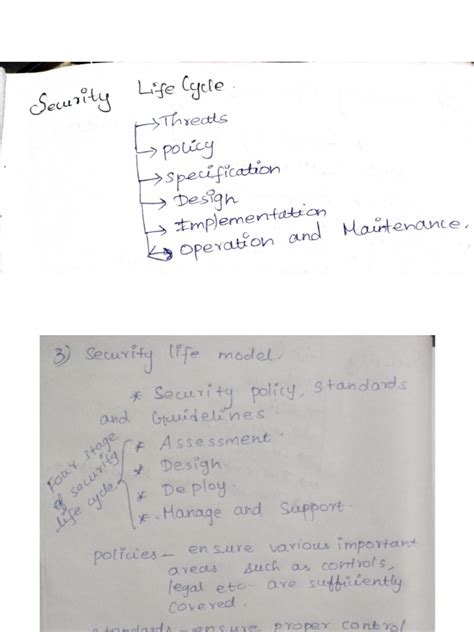 Security Life Cycle.
→ Threats
→ policy
→ specification
→ Design
→ Implementation
→ operation and Maintenance.
3) Security life model.
* Security policy, standards
and Guidelines.
Four stage
of security
life cycle.
* Assessment.
* Design.
* Deploy.
* Manage and Support.
policies - ensure various important
areas such as controls,
legal etc- are sufficiently
covered.
standards - ensure proper control